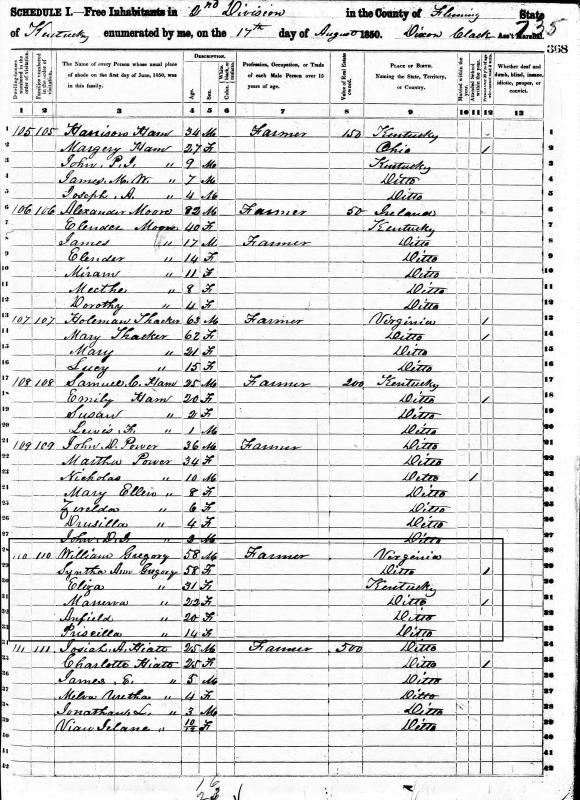 SCHEDULE I.—Free Inhabitants in 2nd Division in the County of Fleming State
of Kentucky enumerated by me, on the 17th day of August 1850. Dixon Clark Ass't Marshal.
235
368
Dwelling-houses numbered in the order of visitation.
Families numbered in the order of visitation.
The Name of every Person whose usual place of abode on the first day of June, 1850, was in this family.
DESCRIPTION.
Age.
Sex.
Color
Profession, Occupation, or Trade of each Male Person over 15 years of age.
Value of Real Estate owned.
PLACE OF BIRTH. Naming the State, Territory, or Country.
Married within the year.
Attended School within the year.
Whether deaf and dumb, blind, insane, idiotic, pauper, or convict.
1 2 3 4 5 6 7 8 9 10 11 12 13
1 105 105 Harrison Ham 34 M Farmer 150 Kentucky 1
2 Margery Ham 27 F Ohio 1 2
3 John P. J. " 9 M Kentucky 3
4 James M. W. " 7 M Ditto 4
5 Joseph A. " 4 M Ditto 5
6 106 106 Alexander Moore 82 M Farmer 50 Ireland 6
7 Elender Moore 40 F Kentucky 7
8 James " 17 M Farmer Ditto 8
9 Elender " 14 F Ditto 9
10 Miram " 11 F Ditto 10
11 " 8 F Ditto 11
12 Dorothy " 4 F Ditto 12
13 107 107 Holeman Thacker 63 M Farmer Virginia 1 13
14 Mary Thacker 62 F Ditto 1 14
15 Mary " 21 F Ditto 15
16 Lucy " 15 F Ditto 16
17 108 108 Samuel C. Ham 25 M Farmer 200 Kentucky 17
18 Emily Ham 20 F Ditto 1 18
19 Susan " 2 F Ditto 19
20 Lewis F. " 1 M Ditto 20
21 109 109 John D. Power 36 M Farmer Ditto 21
22 Martha Power 34 F Ditto 22
23 Nicholas " 10 M Ditto 1 23
24 Mary Ellen " 8 F Ditto 24
25 Zerelda " 6 F Ditto 25
26 Drusilla " 4 F Ditto 26
27 John D. J. " 2 M Ditto 27
28 110 110 William Gregory 58 M Farmer Virginia 28
29 Syntha Ann Gregory 58 F Ditto 1 29
30 Eliza " 31 F Kentucky 30
31 Manerva " 22 F Ditto 1 31
32 Anfield " 20 F Ditto 32
33 Priscilla " 14 F Ditto 33
34 111 111 Josiah A. Hiatt 25 M Farmer 500 Ditto 34
35 Charlotte Hiatt 25 F Ditto 1 35
36 James E. " 5 M Ditto 36
37 Melva Uretha " 4 F Ditto 37
38 Jonathan L. " 3 M Ditto 38
39 " 10/12 F Ditto 39
40 40
41 41
42 42
16